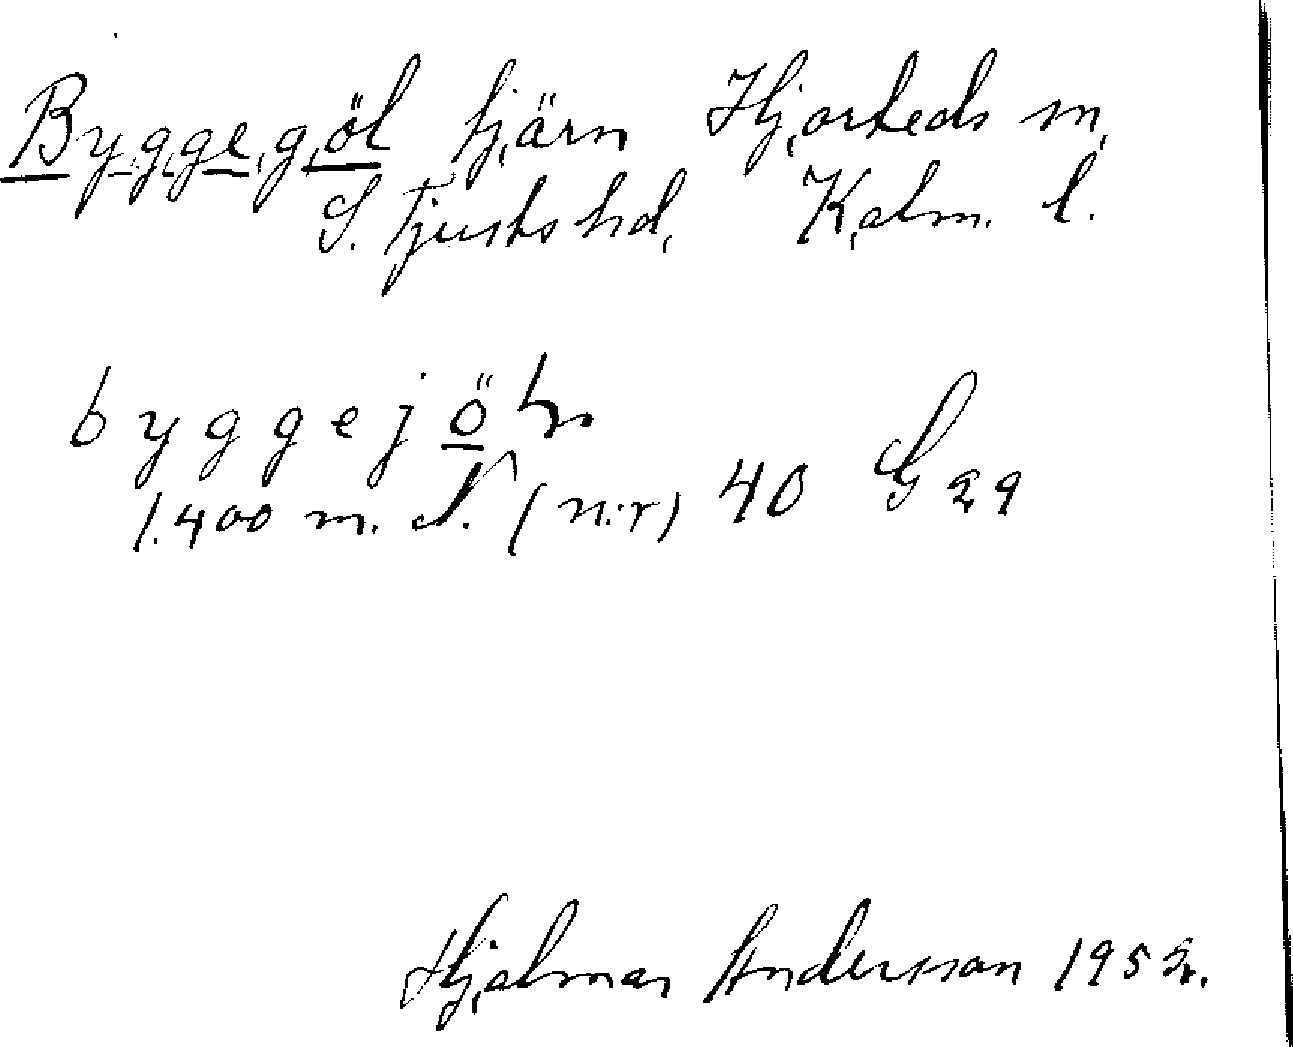 Byggegöl tjärn Hjorteds sn,
S. Tjusts hd, Kalm. l.
byggejöln
1.400 m. N. (n:r) 40 G 29
Hjalmar Andersson 1952.